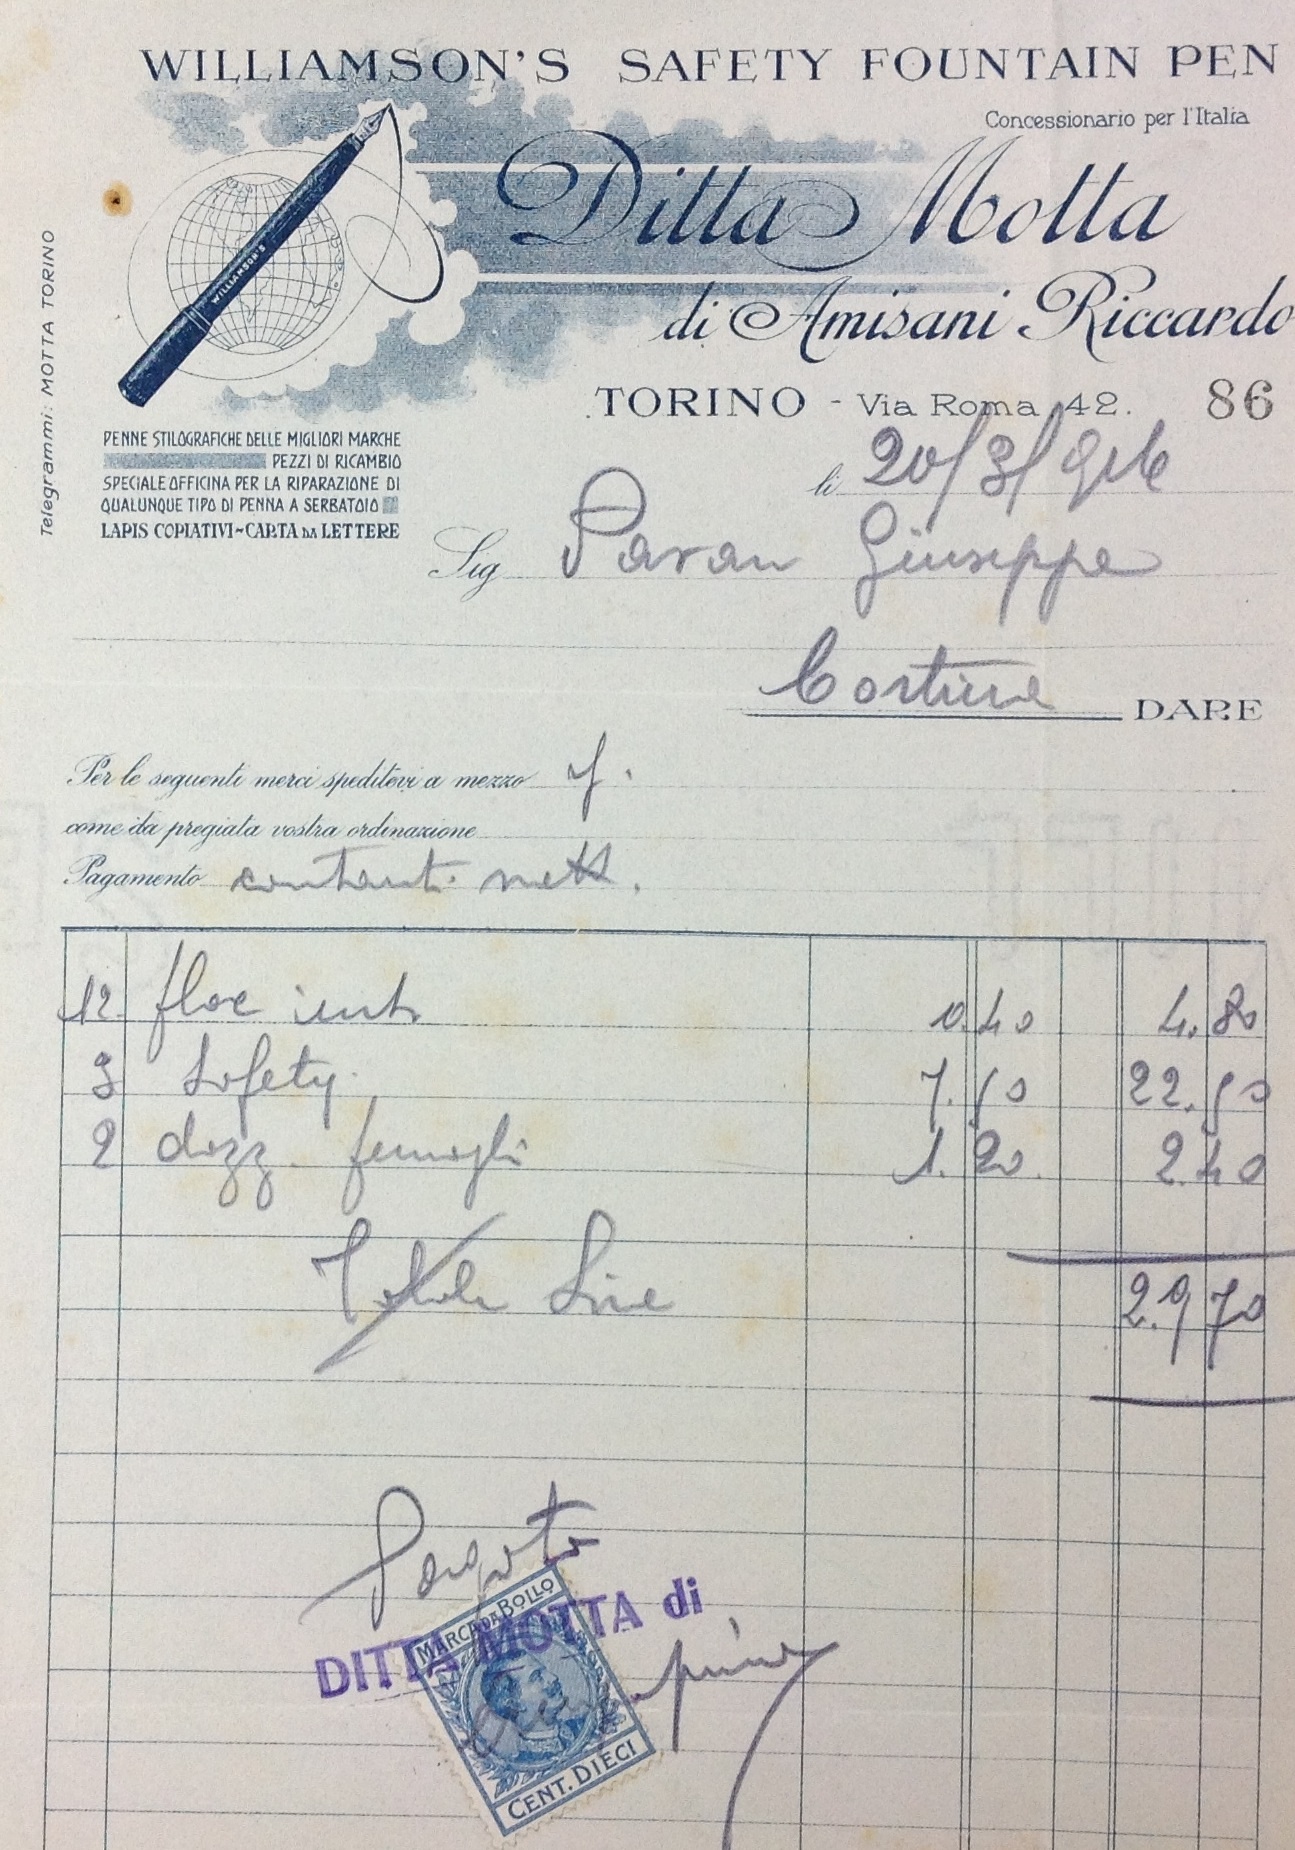 WILLIAMSON'S SAFETY FOUNTAIN PEN
Concessionario per l'Italia
Ditta Motta
di Amisani Riccardo
TORINO - Via Roma 42. 86
WILLIAMSON'S
Telegrammi: MOTTA TORINO
PENNE STILOGRAFICHE DELLE MIGLIORI MARCHE
PEZZI DI RICAMBIO
SPECIALE OFFICINA PER LA RIPARAZIONE DI
QUALUNQUE TIPO DI PENNA A SERBATOIO
LAPIS COPIATIVI-CARTA DA LETTERE
li 20/3/916
Sig Pavan Giuseppe
DARE
Per le seguenti merci speditevi a mezzo
come da pregiata vostra ordinazione
Pagamento contant. nett.
12 floc 0.40 4.80
3 Safety 7.50 22.50
2 dozz. fermagli 1.20 2.40
Totale Lire 29.70
Pagato
DITTA MOTTA di
MARCA DA BOLLO
CENT. DIECI